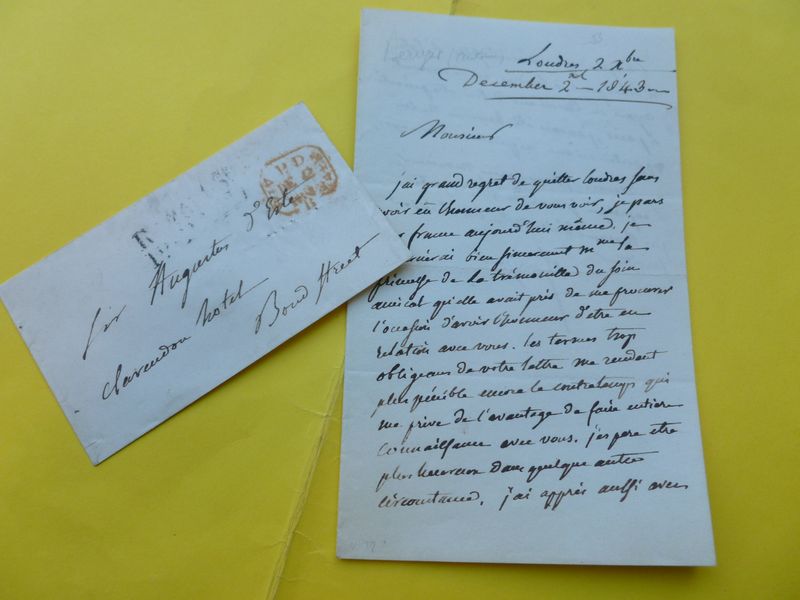 Londres, 2 Xbre
December 2nd 1843
Monsieur
j'ai grand regret de quitter londres sans
avoir eu l'honneur de vous voir, je pars
france aujourd'hui même. je
bien sincerement Mme la
princesse de la trémouille du soin
amical qu'elle avait pris de me procurer
l'occasion d'avoir l'honneur d'etre en
relation avec vous. les termes trop
obligeans de votre lettre me rendent
plus pénible encore le contretemps qui
me prive de l'avantage de faire entiere
connaissance avec vous. j'espere etre
plus heureux dans quelque autre
circonstance. j'ai appris aussi avec
PAID
Sir Augustus d'Este
clarendon hotel
Bond street